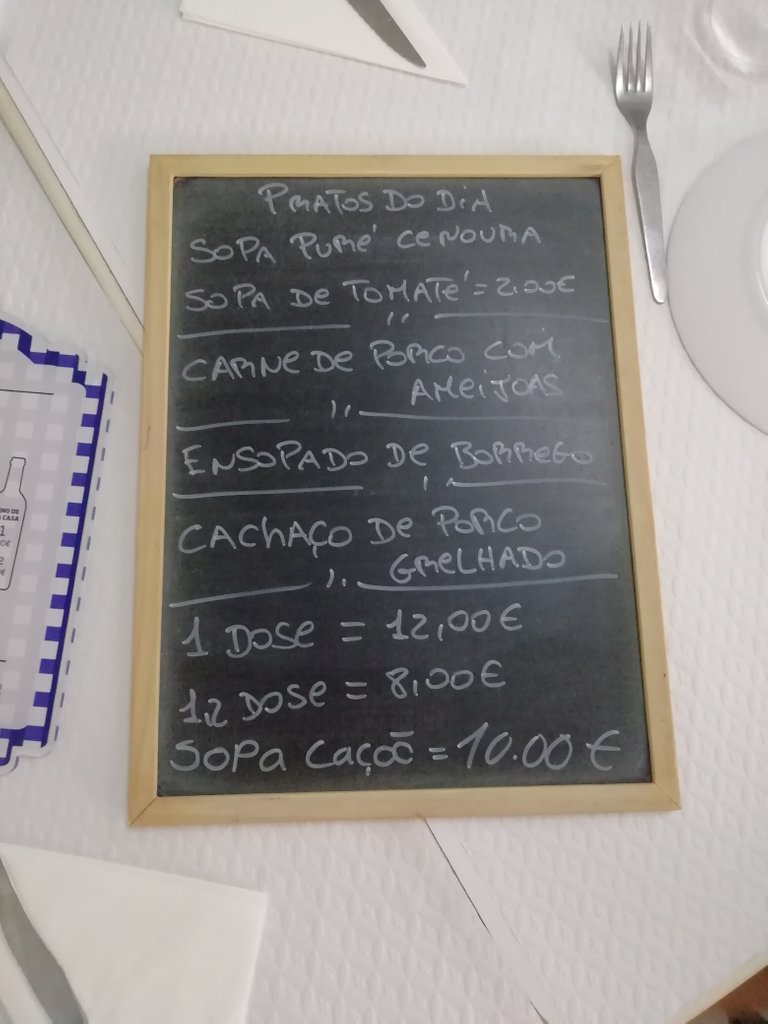 PRATOS DO DIA
SOPA PURÉ CENOURA
SOPA DE TOMATÉ = 2.00€
CARNE DE PORCO COM
AMEIJOAS
ENSOPADO DE BORREGO
CACHAÇO DE PORCO
GRELHADO
1 DOSE = 12,00€
1,2 DOSE = 8,00€
SOPA CAÇÕ = 10.00€